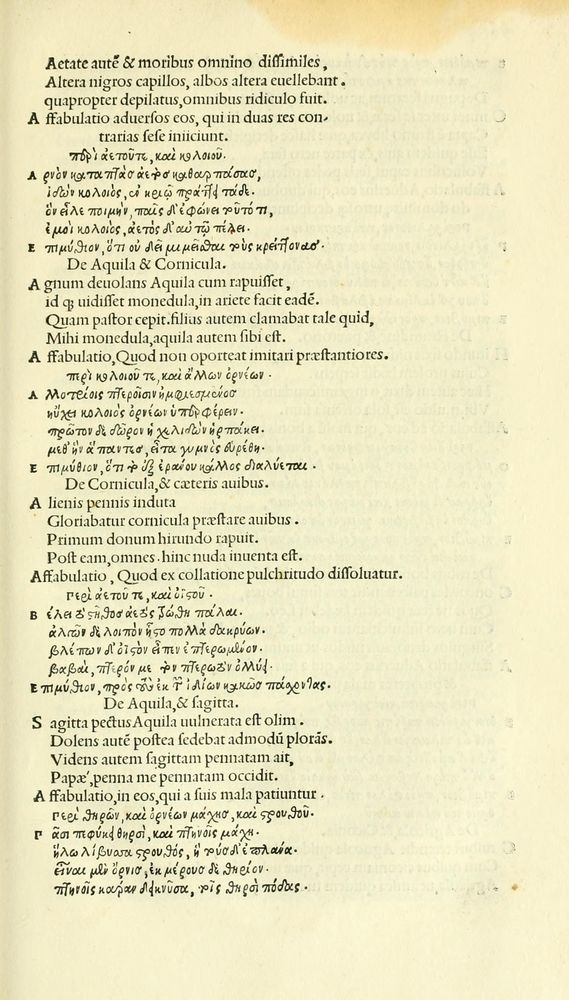 Aetate autẽ & moribus omnino dissimiles,
Altera nigros capillos, albos altera euellebant.
quapropter depilatus, omnibus ridiculo fuit.
A ffabulatio aduersos eos, qui in duas res con-
trarias sese iniiciunt.
περὶ ἀετοῦ τε, καὶ κολοιοῦ.
Α ρνὸν καταπτὰσ ἀετὸσ καθαρπάσασ,
ἰδὼν κολοιὸς, ἐν κριῷ πράττει τάδε.
ὃν εἷλε ποιμὴν, παῖς δ' ἐφώνει τοῦτό τι,
ἐμοὶ κολοιὸς, ἀετὸς δ' αὑτῷ πέλει.
Ε πιμύθιον, ὅτι οὐ δεῖ μιμεῖσθαι τοὺς κρείττονασ.
De Aquila & Cornicula.
A gnum deuolans Aquila cum rapuisset,
id q; uidisset monedula, in ariete facit eadẽ.
Quam pastor cepit. filius autem clamabat tale quid,
Mihi monedula, aquila autem sibi est.
A ffabulatio, Quod non oporteat imitari præstantiores.
περὶ κολοιοῦ τε, καὶ ἄλλων ὀρνέων.
Α λλοτρίοις πτεροῖσιν ἠμφιεσμένοσ
ηὔχει κολοιὸς ὀρνέων ὑπερφέρειν.
πρῶτον δὲ δῶρον ἡ χελιδὼν ἥρπακει.
μεθ' ἣν ἅπαντεσ, εἶτα γυμνὸς εὑρέθη.
Ε πιμύθιον, ὅτι τὸ ἐξ ἐράνου κάλλος διαλύεται.
De Cornicula, & cæteris auibus.
A lienis pennis induta
Gloriabatur cornicula præstare auibus.
Primum donum hirundo rapuit.
Post eam, omnes. hinc nuda inuenta est.
Affabulatio, Quod ex collatione pulchritudo dissoluatur.
περὶ ἀετοῦ τε, καὶ ὀϊστοῦ.
Β έλει στῆθοσ ἀετὸς ἐτρώθη πάλαι.
ἀλγῶν δὲ λοιπὸν ἧστο πολλὰ δακρύων.
βλέπων δ' ὀϊστὸν εἶπεν ἐπτερωμένον.
βαβαὶ, πτερόν με τὸν πτερωτὸν ὀλλύει.
Ε πιμύθιον, πρὸς τοὺς ἐκ τῶν ἰδίων κακῶσ πάσχοντας.
De Aquila, & sagitta.
S agitta pectus Aquila uulnerata est olim.
Dolens autẽ postea sedebat admodũ plorãs.
Videns autem sagittam pennatam ait,
Papæ, penna me pennatam occidit.
A ffabulatio, in eos, qui a suis mala patiuntur.
περὶ θηρῶν, καὶ ὀρνέων μάχησ, καὶ στρουθοῦ.
Γ ᾶσι πεφύκει θηρσὶ, καὶ πτηνοῖς μάχη.
ἥλω λίβυσσα στρουθὸς, ἡ τούσδ' ἐπλάνα.
εἶναι μὲν ὄρνισ, ἐκ μέρουσ δὲ θηρίον.
πτηνοῖς κάραν δεικνῦσα, τοῖς θηρσὶ πόδας.